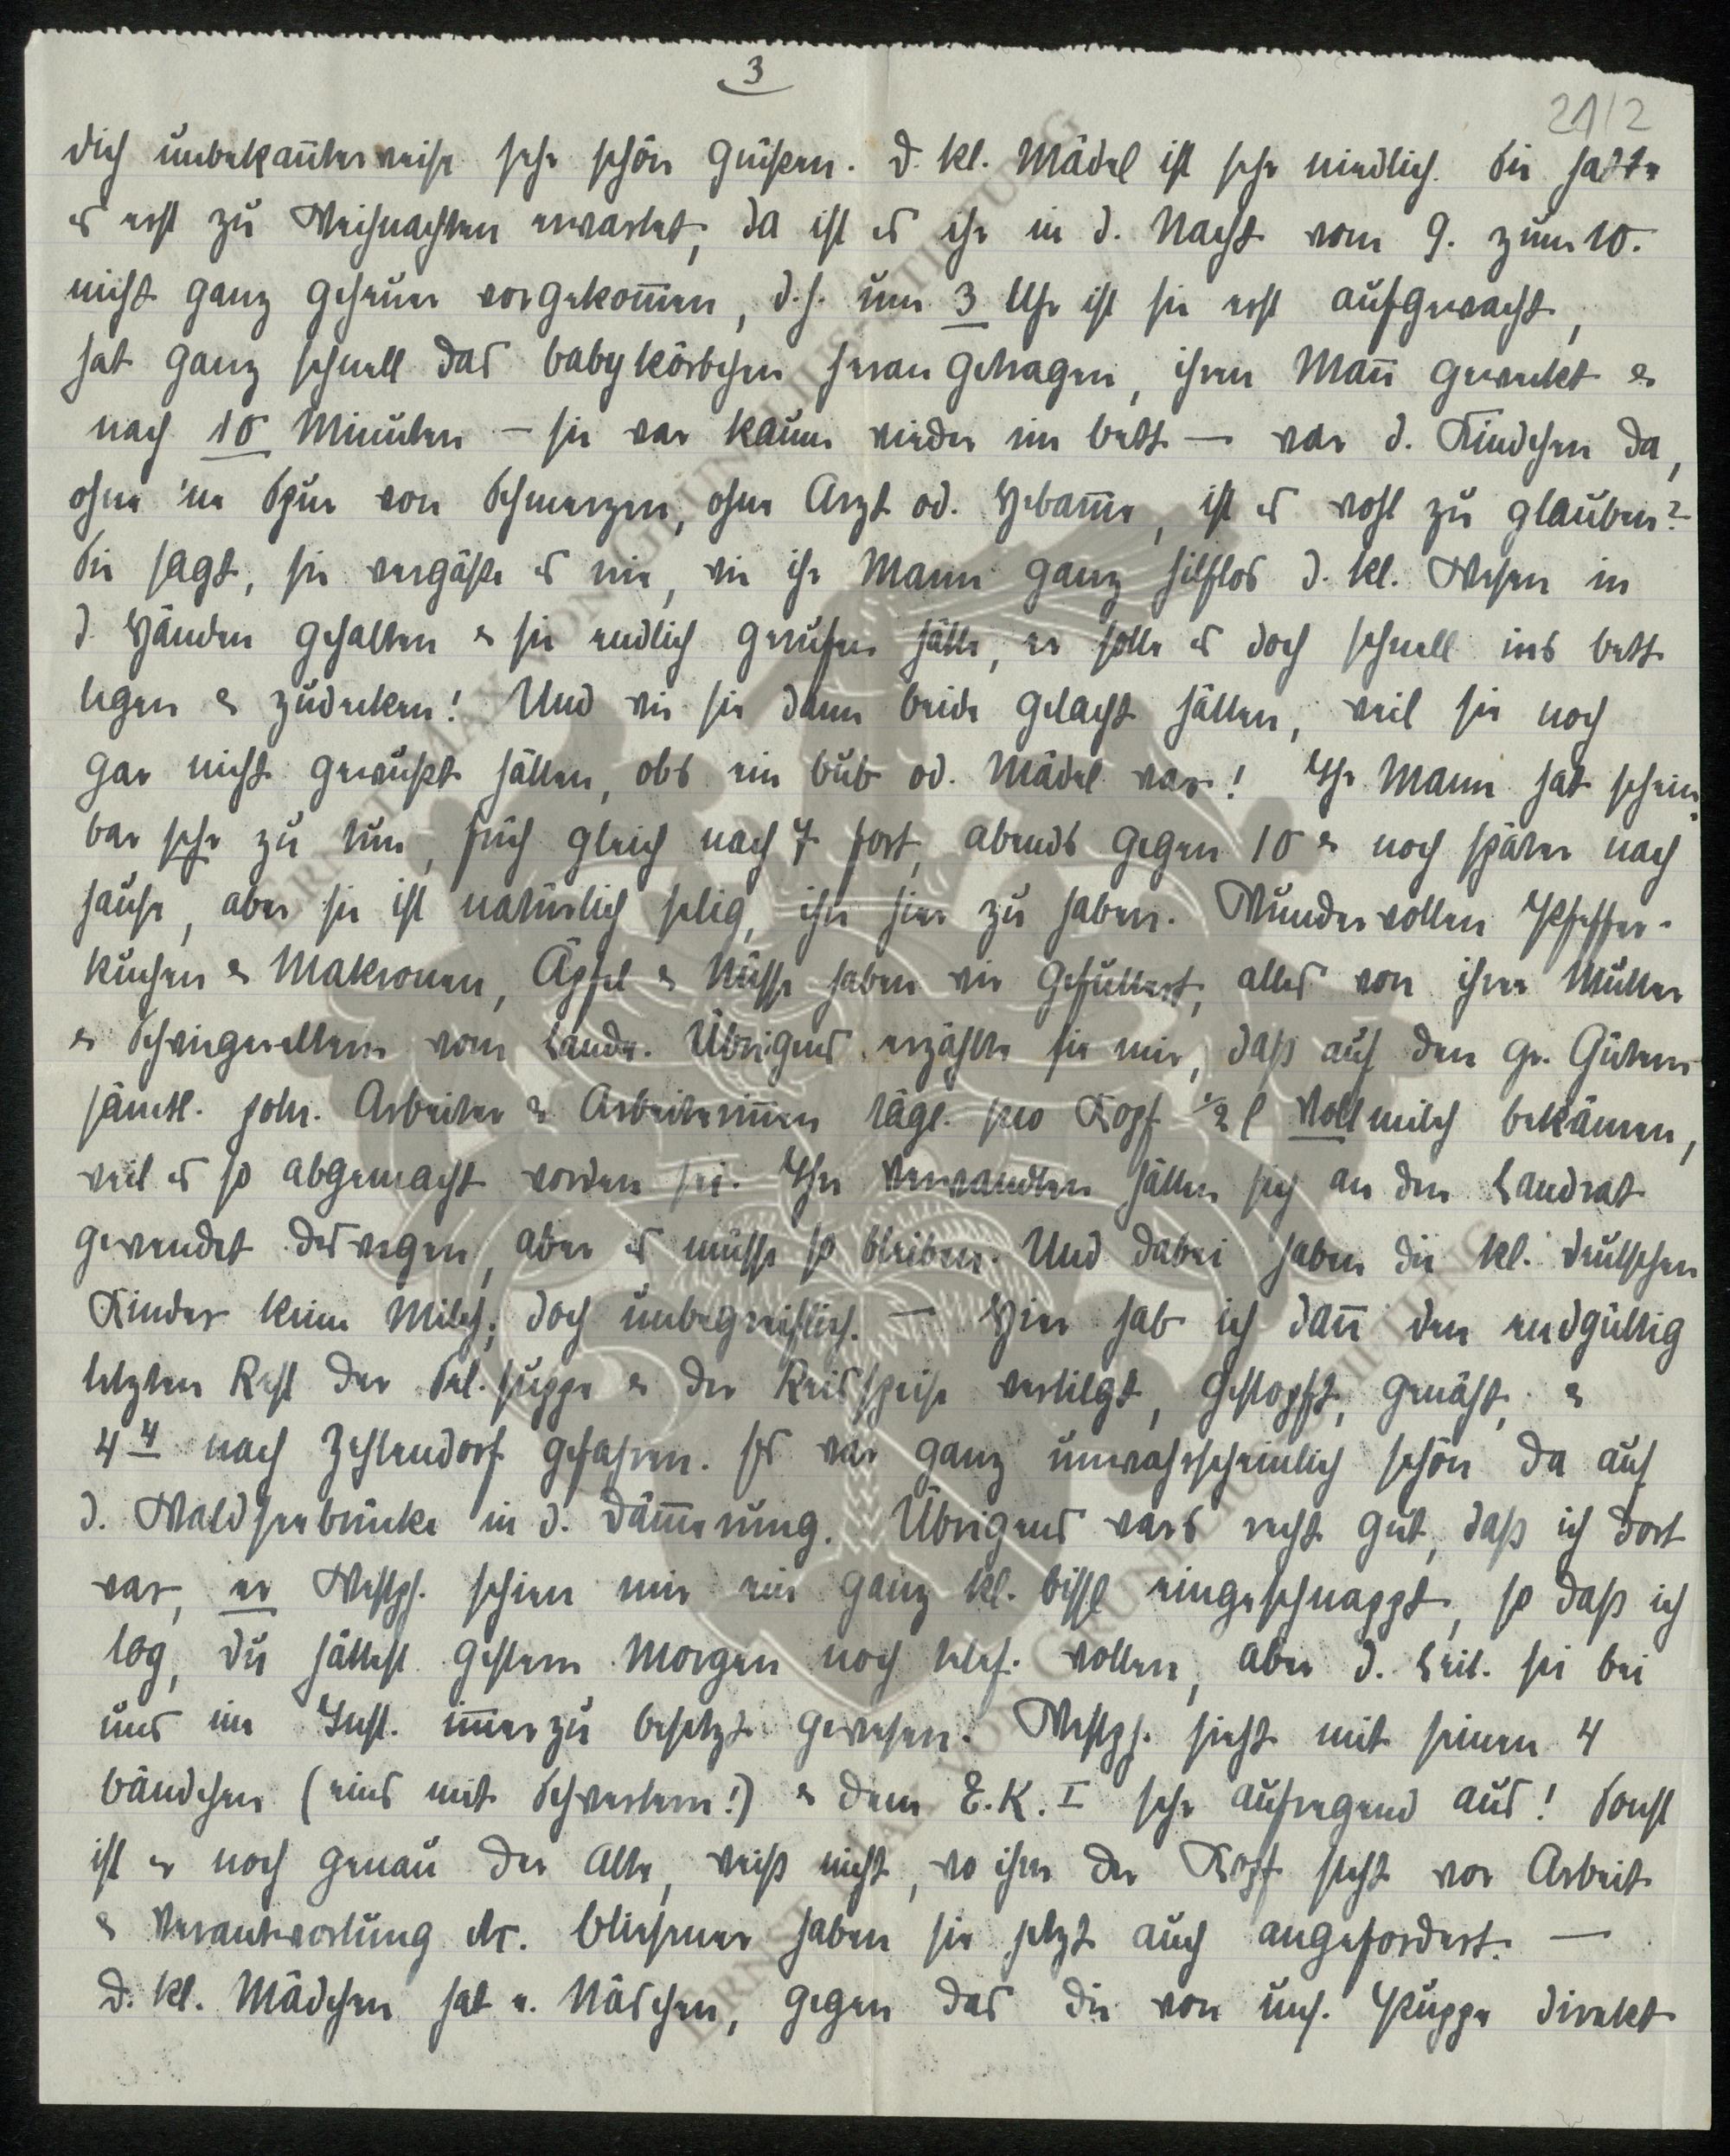 3
21/2
dich unbekannterweise sehr schön grüßen. D. kl. Mädel ist sehr niedlich. Sie hatte
es erst zu Weihnachten erwartet, da ist es ihr in d. Nacht vom 9. zum 10.
nicht ganz geheuer vorgekommen, d.h. um 3 Uhr ist sie erst aufgewacht,
hat ganz schnell das Babykörbchen heran getragen, ihren Mann geweckt &
nach 10 Minuten – sie war kaum wieder im Bett – war d. Kindchen da,
ohne 'ne Spur von Schmerzen, ohne Arzt od. Hebamme, ist es wohl zu glauben?
Sie sagt, sie vergäße es nie, wie ihr Mann ganz hilflos d. kl. Wesen in
d. Händen gehalten & sie endlich gerufen hätte, er solle es doch schnell ins Bett
legen & zudecken! Und wie sie dann beide gelacht hätten, weil sie noch
gar nicht gewußt hätten, obs ein Bub od. Mädel war! Ihr Mann hat schein-
bar sehr zu tun, früh gleich nach 7 fort, abends gegen 10 & noch später nach
hause, aber sie ist natürlich selig, ihn hier zu haben. Wundervollen Pfeffer-
kuchen & Makronen, Äpfel & Nüsse haben wir gefuttert, alles von ihrer Mutter
& Schwiegereltern vom Lande. Übrigens erzählte sie mir, daß auf den gr. Gütern
sämtl. poln. Arbeiter & Arbeiterinnen tägl. pro Kopf ½ l Vollmilch bekämen,
weil es so abgemacht worden sei. Ihre Verwandten hätten sich an den Landrat
gewendet deswegen, aber es müsse so bleiben. Und dabei haben die kl. deutschen
Kinder keine Milch; doch unbegreiflich. – Hier hab ich dann den endgültig
letzten Rest der Sel. suppe & der Reisspeise vertilgt, gestopft, genäht, &
4 4 nach Zehlendorf gefahren. Es war ganz unwahrscheinlich schön da auf
d. Waldseebrücke in d. Dämmerung. Übrigens wars recht gut, daß ich dort
war, er Westph. schien mir ein ganz kl. bissl eingeschnappt, so daß ich
log, du hättest gestern Morgen noch telef. wollen, aber d. Leit. sei bei
uns im Inst. immerzu besetzt gewesen. Westph. sieht mit seinen 4
Bändchen (eins mit Schwertern!) & dem E.K. I sehr aufregend aus! Sonst
ist er noch genau der Alte, weiß nicht, wo ihm der Kopf steht vor Arbeit
& Verantwortung etc. haben sie jetzt auch angefordert. –
D. kl. Mädchen hat e. Näschen, gegen das die von uns. Puppe direkt
ERNST MAX VON GRUNELIUS-STIFTUNG
ERNST MAX VON GRUNELIUS-STIFTUNG